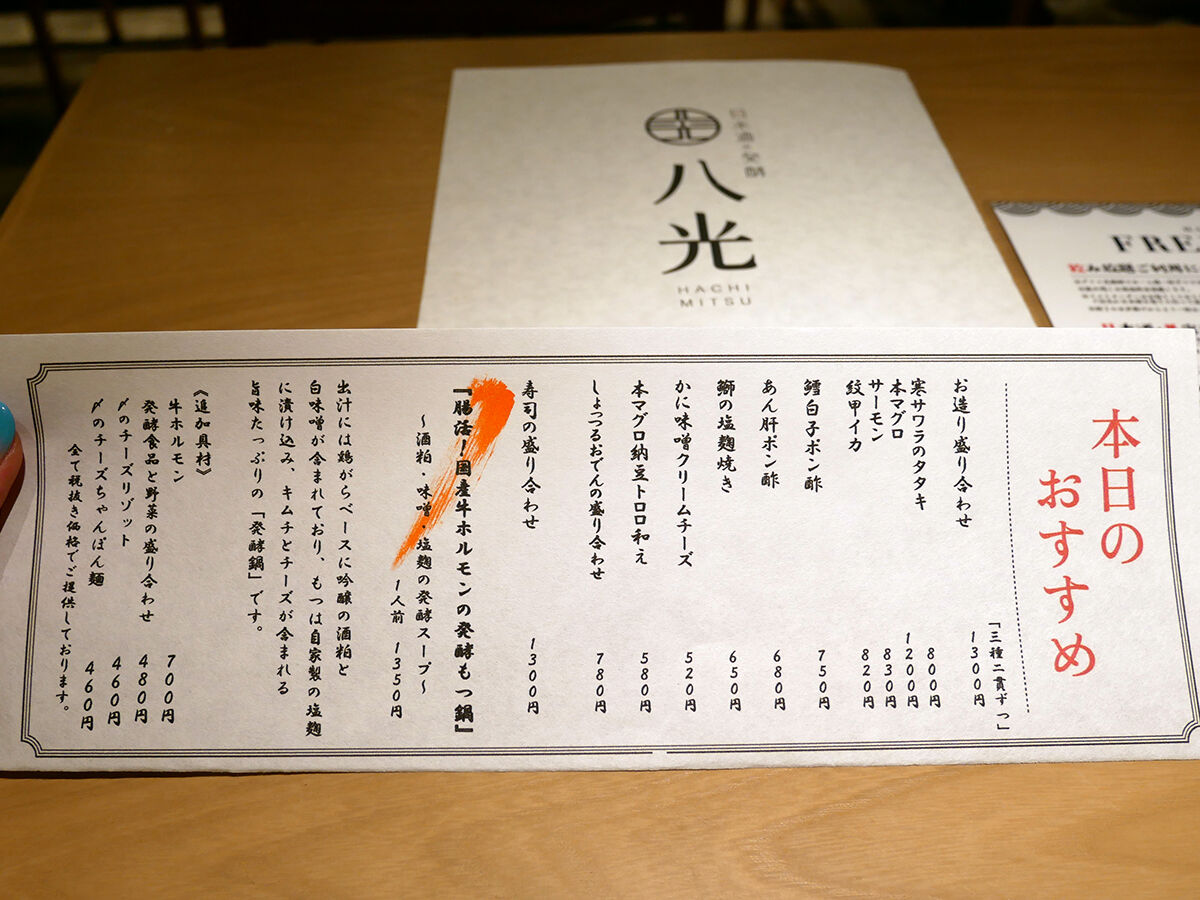 日本酒と発酵
八光
HACHI
MITSU
FRE
本日の
おすすめ
「三種二貫ずつ」
お造り盛り合わせ 1300円
寒サワラのタタキ 800円
本マグロ 1200円
サーモン 830円
紋甲イカ 820円
鱈白子ポン酢 750円
あん肝ポン酢 680円
鰤の塩麹焼き 650円
かに味噌クリームチーズ 520円
本マグロ納豆トロロ和え 580円
しょっつるおでんの盛り合わせ 780円
寿司の盛り合わせ 1300円
『腸活！国産牛ホルモンの発酵もつ鍋』
～酒粕・味噌・塩麹の発酵スープ～
1人前 1350円
出汁には鶏がらベースに吟醸の酒粕と
白味噌が含まれており、もつは自家製の塩麹
に漬け込み、キムチとチーズが含まれる
旨味たっぷりの「発酵鍋」です。
《追加具材》
牛ホルモン 700円
発酵食品と野菜の盛り合わせ 480円
〆のチーズリゾット 460円
〆のチーズちゃんぽん麺 460円
全て税抜き価格でご提供しております。